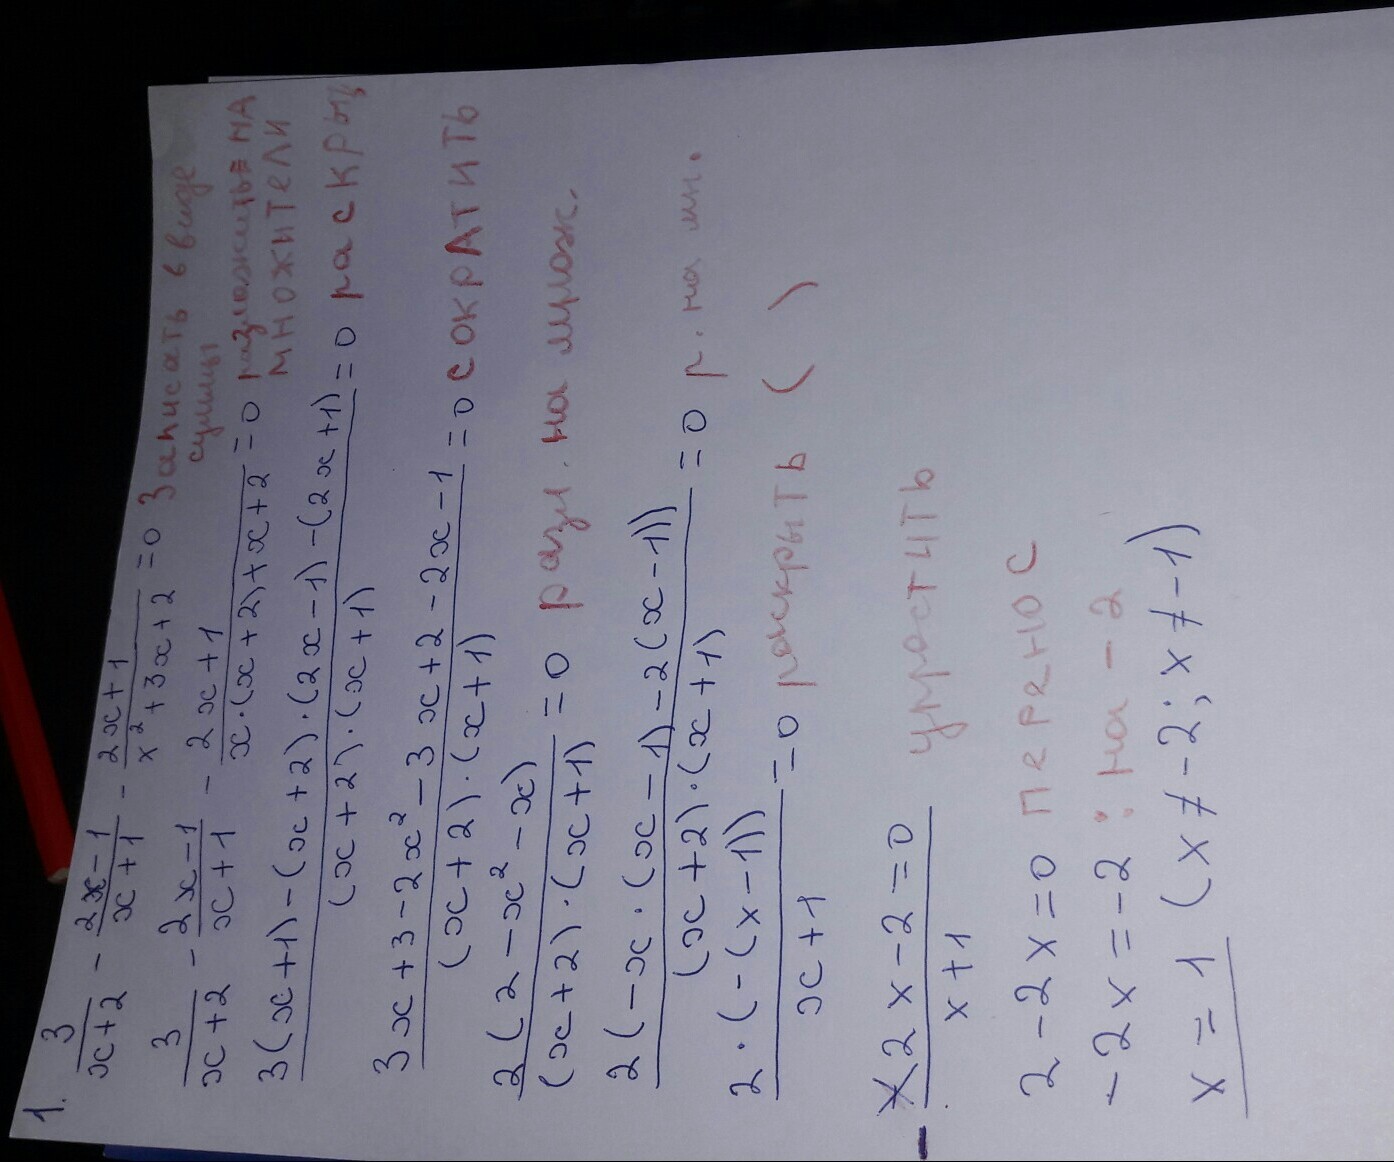 1.
3/(x+2) - (2x-1)/(x+1) - (2x+1)/(x²+3x+2) =0 Записать в виде
суммы
3/(x+2) - (2x-1)/(x+1) - (2x+1)/(x·(x+2)+x+2) =0 разложить на
множители
(3(x+1)-(x+2)·(2x-1)-(2x+1))/((x+2)·(x+1)) =0 раскрыть
(3x+3-2x²-3x+2-2x-1)/((x+2)·(x+1)) =0 сократить
2(2-x²-x)/((x+2)·(x+1)) =0 разл. на множ.
2(-x·(x-1)-2(x-1))/((x+2)·(x+1)) =0 р. на мн.
2·(-(x-1))/(x+1) =0 раскрыть ( )
-2x-2=0/(x+1) упростить
2-2x=0 перенос
-2x=-2 : на -2
x=1 (x≠-2; x≠-1)